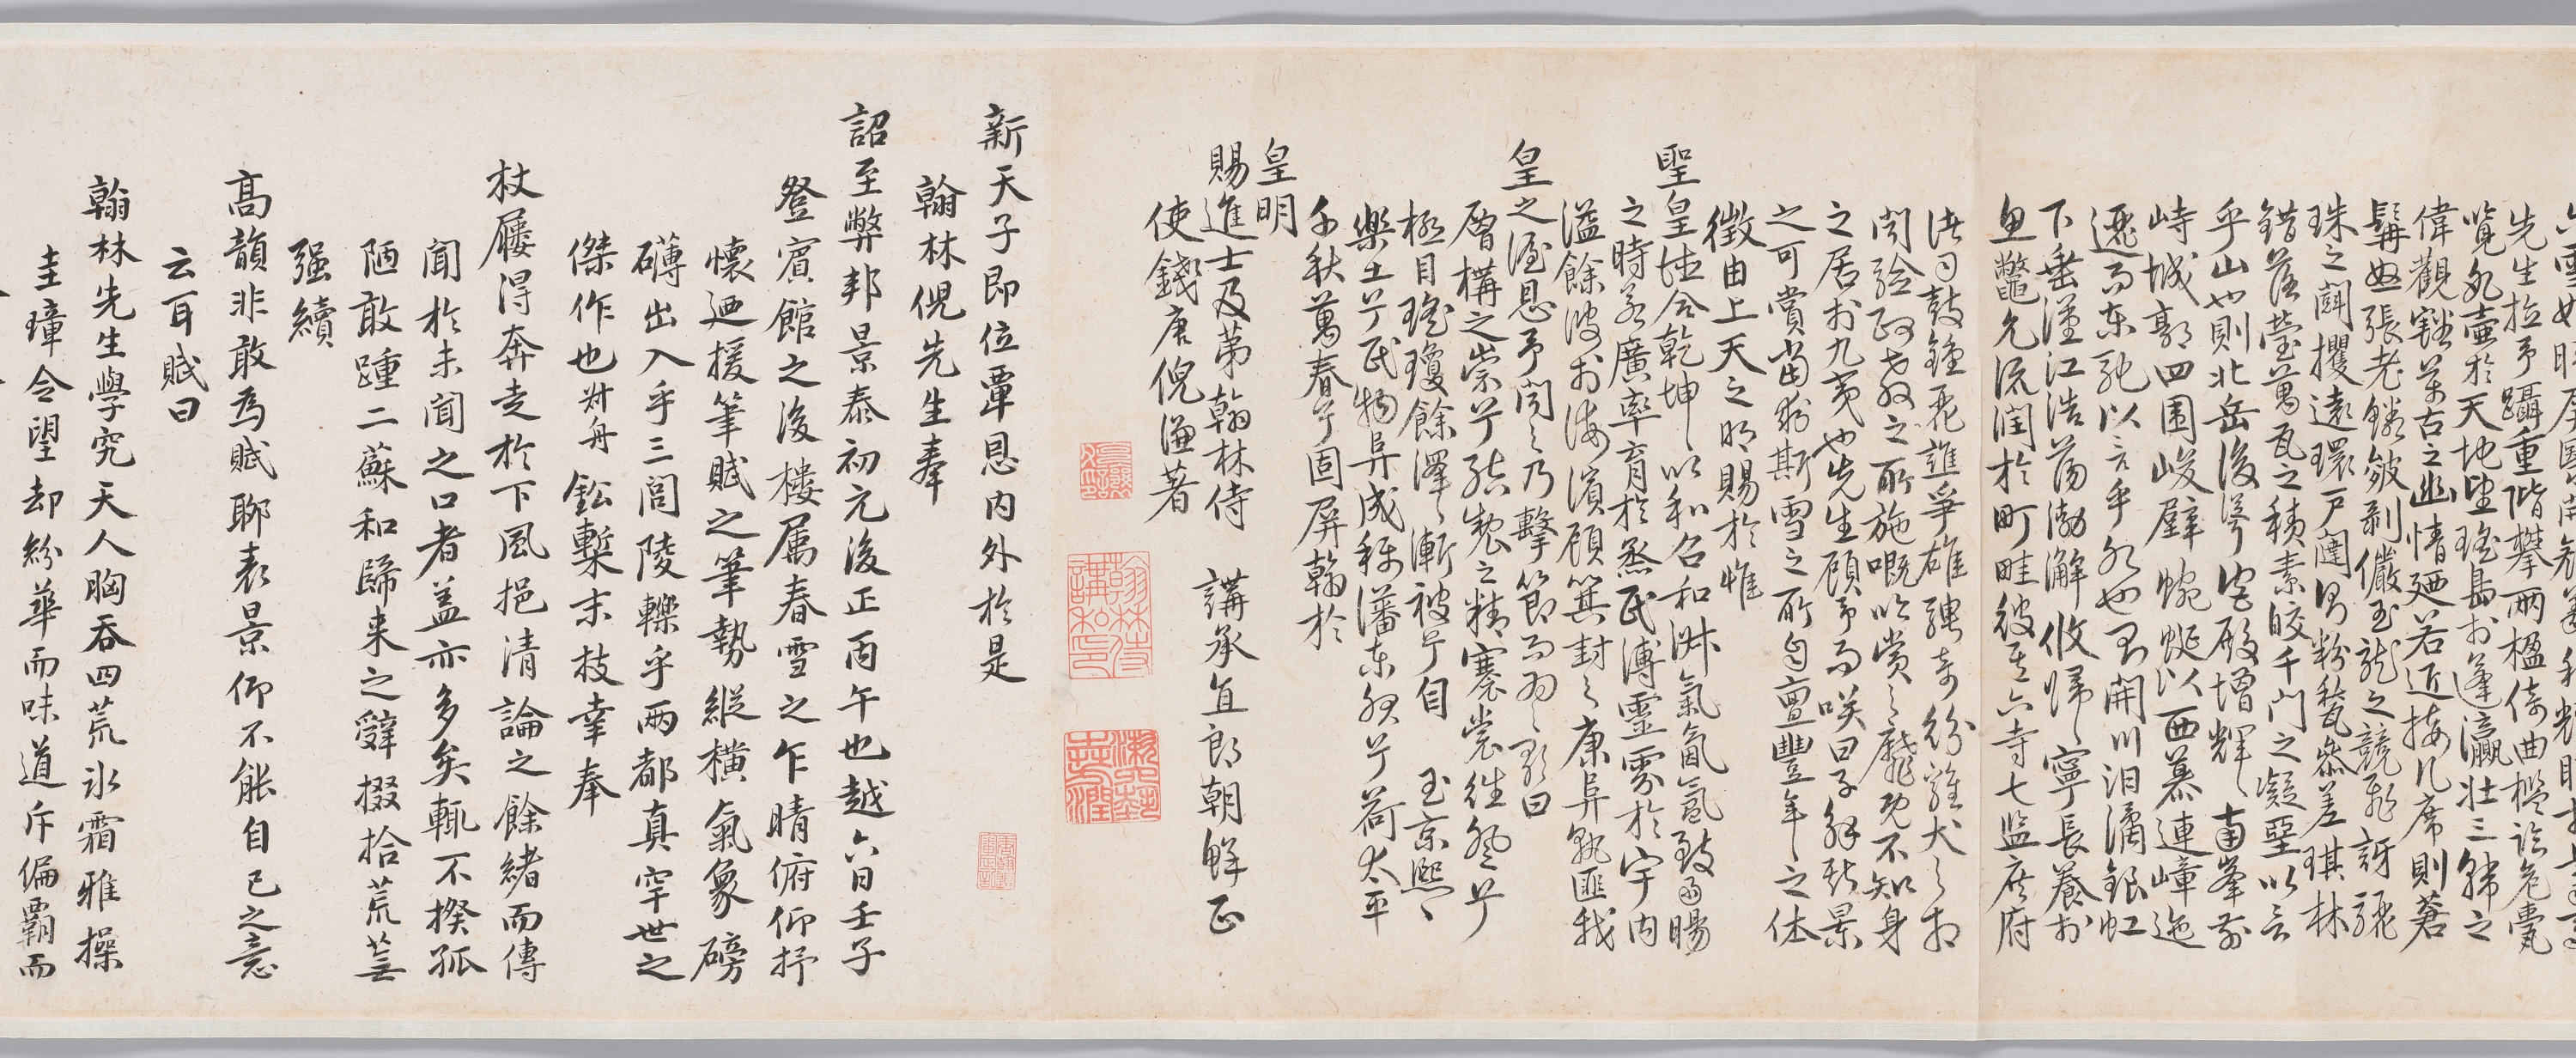 先生拉予躡重階攀兩楹倚曲檻詥危甍
覽九壺於天地望瑤島於蓬瀛壯三韓之
偉觀豁萬古之幽情廼若近接几席則蒼
髯怒張老鱗皴剥儼玉龍之競飛訝驪
珠之鬬攫遠環戶闥則粉甃參差琪林
錯落瑩萬瓦之積素皎千門之凝堊以言
乎山也則北岳後聳宮殿增輝南峯前
峙城郭四圍峻壁蜿蜒以西慕連嶂迤
邐而東馳以言乎水也則開川汨潏銀虹
下垂漢江浩蕩渤澥攸歸寧長養於
魚鱉允流潤於町畦彼其六寺七監庶府
諸司鼓鍾爭雄騁奇紛雞犬之相
聞政教之所施嘅吟賞之靡既不知身
之居於九夷也先生顧予而咲曰子解斯景
之可賞當知斯雪之所自亶豐年之休
徵由上天之明賜於惟
聖皇德合乾坤以和召和沖氣氤氳致雨暘
之時若廣率育於烝民溥靈雰於宇内
溢餘波於海濱顧箕封之康阜孰匪我
皇之渥恩予聞之乃擊節而為之歌曰
層構之崇兮之精褰裳往登兮
極目瑤瓊餘澤漸被兮自玉京熙熙
樂土兮民物阜成稱藩東服兮荷太平
千秋萬春兮固屏翰於
皇明
賜進士及第翰林侍講承直郎朝鮮正
使錢唐倪謙著
新天子即位覃恩内外於是
翰林倪先生奉
詔至弊邦景泰初元後正丙午也越六日壬子
登賓館之後樓屬春雪之乍晴俯仰抒
懷廼援筆賦之筆勢縱橫氣象磅
礴出入乎三閭陵轢乎兩都真罕世之
傑作也叔舟鉛槧末枝幸奉
杖屨得奔走於下風挹清論之餘緒而傳
聞於未聞之口者盖亦多矣輒不揆孤
陋敢踵二蘇和歸来之辭掇拾荒蕪
强續
高韻非敢為賦聊表景仰不能自已之意
云耳賦曰
翰林先生學究天人胸吞四荒氷霜雅操
圭璋令望却紛華而味道斥偏覇而